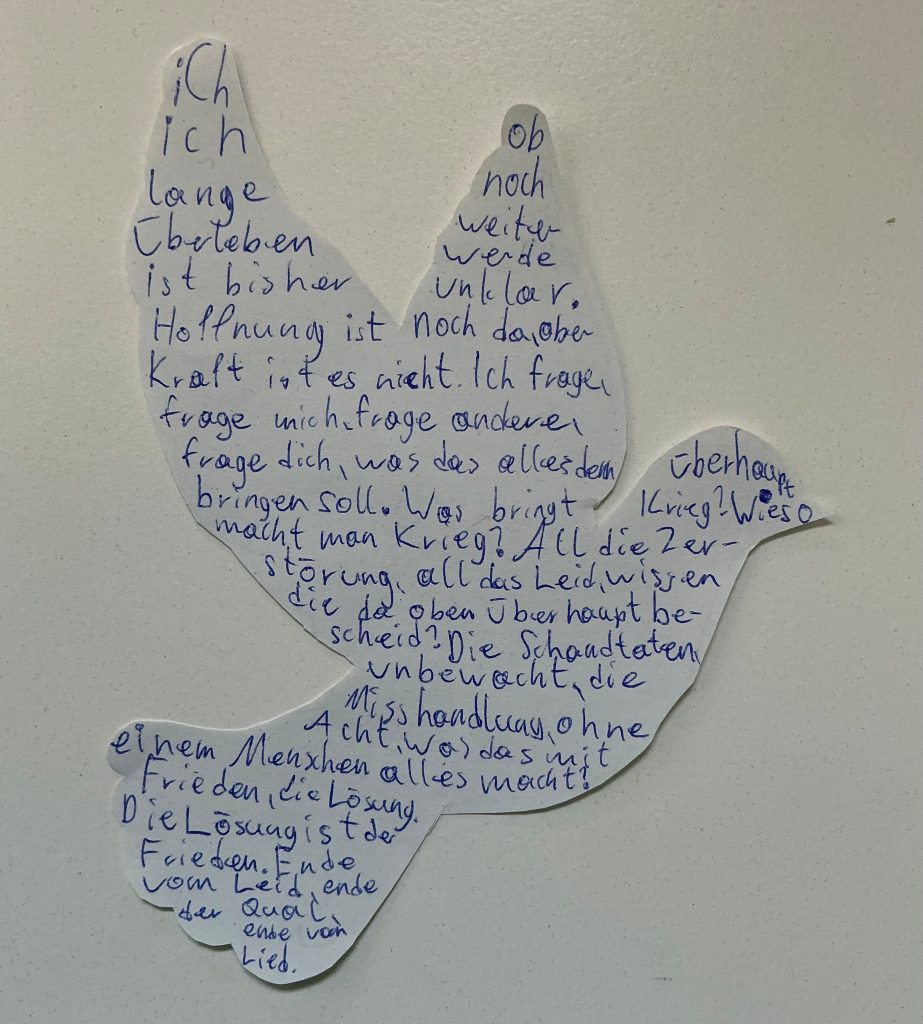 iCh ob
ich noch
lange weiter
Überleben werde
ist bisher unklar.
Hoffnung ist noch da, aber
Kraft ist es nicht. Ich frage,
frage mich, frage andere,
frage dich, was das alles denn
bringen soll. Was bringt überhaupt
Krieg? Wieso
macht man Krieg? All die Zer-
störung, all das Leid, wissen
die da oben Überhaupt be-
scheid? Die Schandtaten,
unbewacht, die
Misshandlung, ohne
Acht, was das mit
einem Menschen alles macht!
Frieden, die Lösung.
Die Lösung ist der
Frieden. Ende
vom Leid, ende
der Qual,
ende vom
Lied.